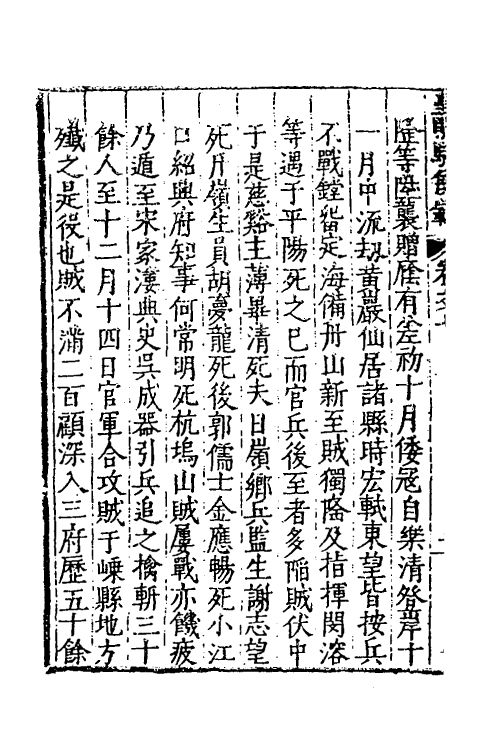 等陞襲贈廕有差初十月倭寇自樂清登岸十
一月中流刼黃巖仙居諸縣時宏軾東望皆按兵
不戰鏜留定海備舟山新至賊獨廕及指揮閔溶
等遇于平陽死之巳而官兵後至者多陷賊伏中
于是慈谿主薄畢清死夫日嶺鄉兵監生謝志望
死斤嶺生員胡夢龍死後郭儒士金應暢死小江
口紹興府知事何常明死杭塢山賊屢戰亦饑疲
乃遁至宋家漊典史吳成器引兵追之擒斬三十
餘人至十二月十四日官軍合攻賊于嵊縣地方
殱之是役也賊不滿二百顧深入三府歷五十餘